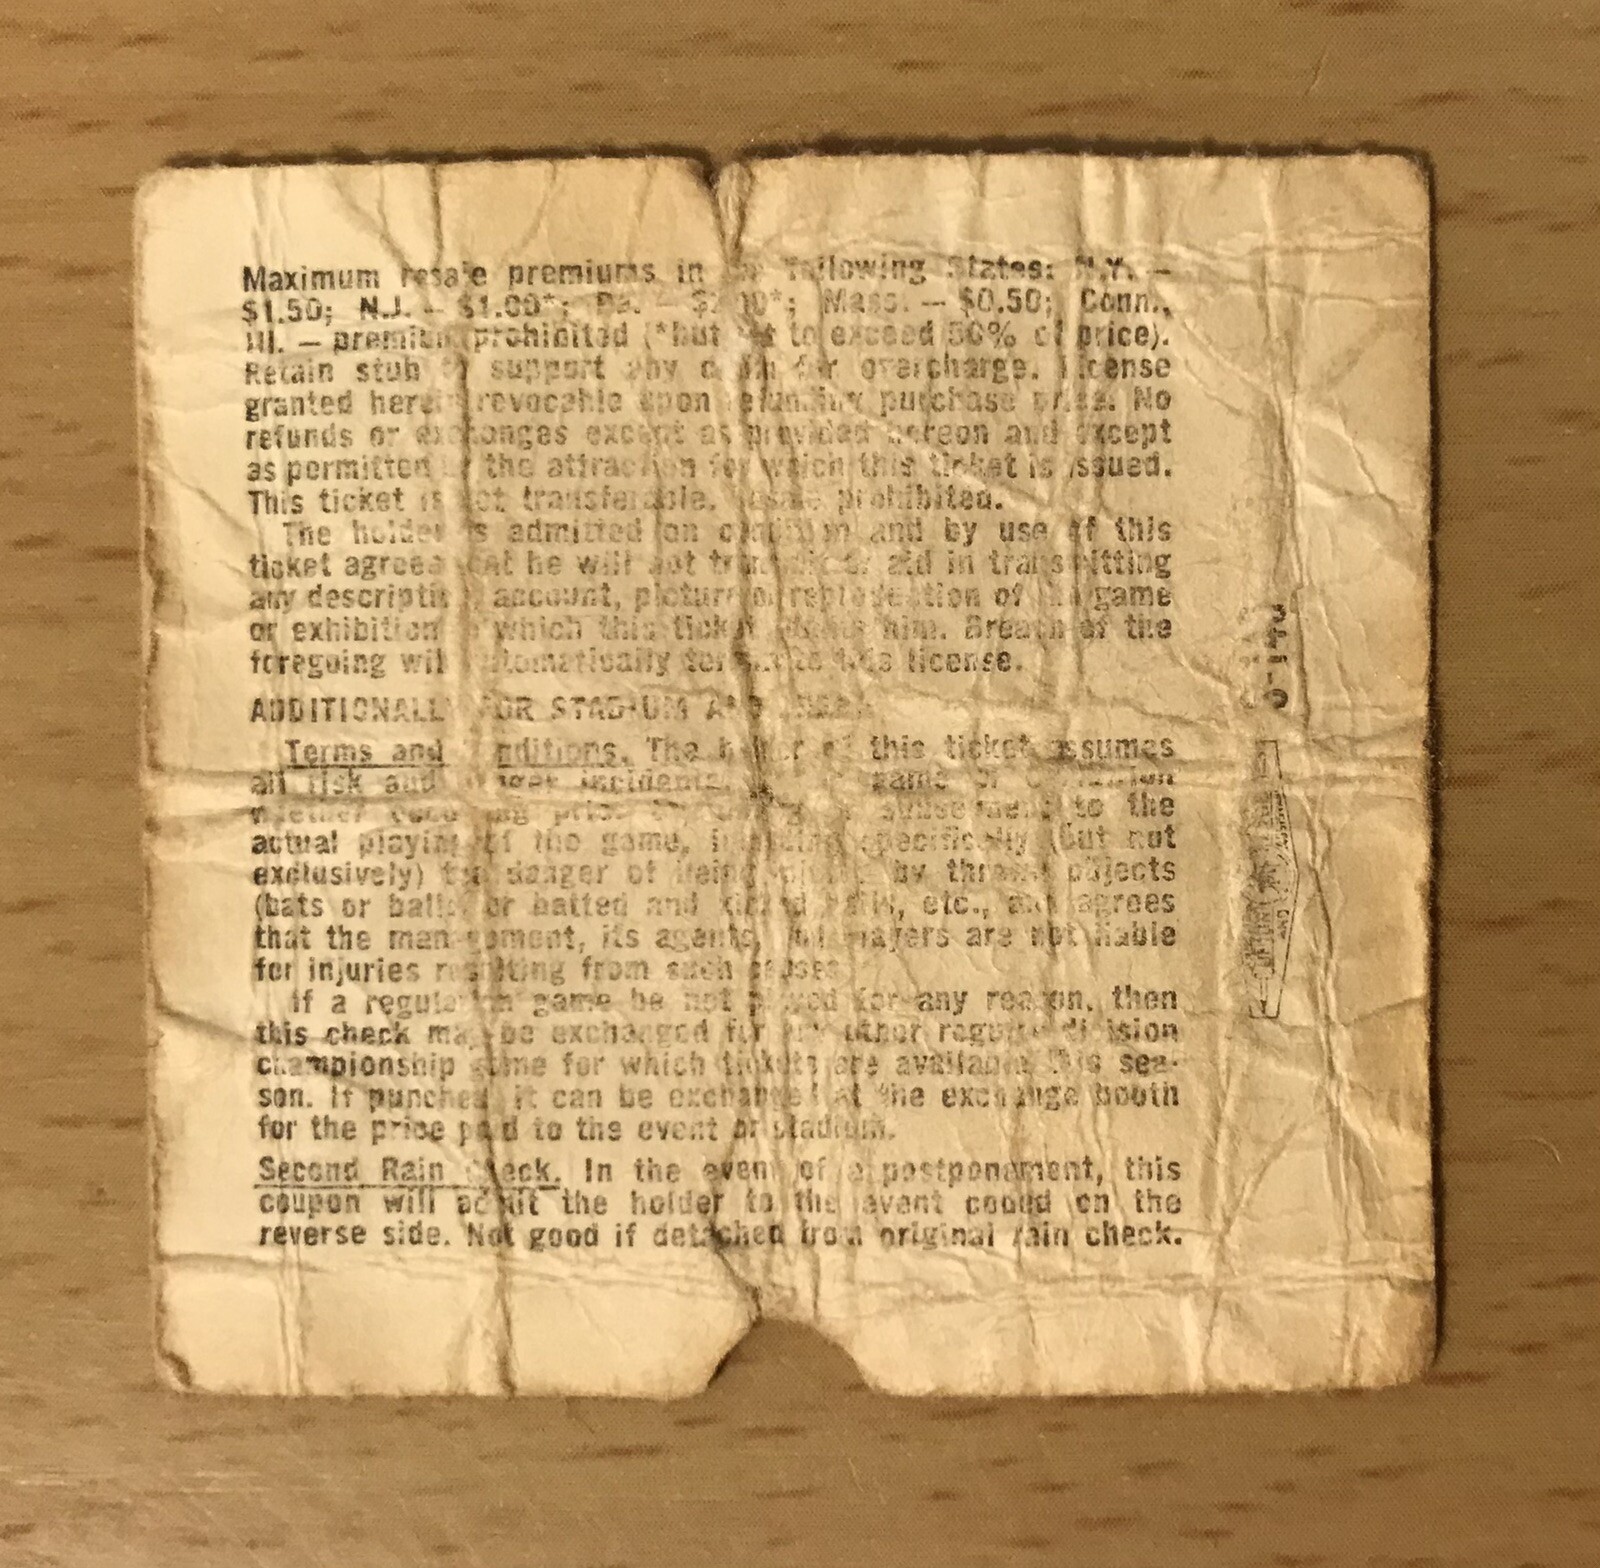 Maximum resale premiums in following States: N.Y. –
$1.50; N.J. – $1.00*; Pa. – Mass. – $0.50; Conn.,
Ill. – premium prohibited (*but not to exceed 50% of price).
Retain stub to support any claim for overcharge. License
granted herein revocable upon refunding purchase price. No
refunds or exchanges except as provided hereon and except
as permitted by the attraction for which this ticket is issued.
This ticket is not transferable. Resale prohibited.
The holder is admitted on condition and by use of this
ticket agrees that he will not transmit or aid in transmitting
any description, account, picture or reproduction of the game
or exhibition to which this ticket admits him. Breach of the
foregoing will automatically terminate this license.
ADDITIONALLY FOR STADIUM AND
Terms and Conditions. The holder of this ticket assumes
all risk and danger incidental game or exhibition
whether occurring prior subsequent to the
actual playing of the game, including specifically (but not
exclusively) the danger of being by thrown objects
(bats or balls, or batted and kicked balls, etc., and agrees
that the management, its agents, and players are not liable
for injuries resulting from such causes.
If a regulation game be not played for any reason, then
this check may be exchanged for any other regular division
championship game for which tickets are available this sea-
son. If punched it can be exchanged at the exchange booth
for the price paid to the event or stadium.
Second Rain Check. In the event of a postponement, this
coupon will admit the holder to the event coded on the
reverse side. Not good if detached from original rain check.